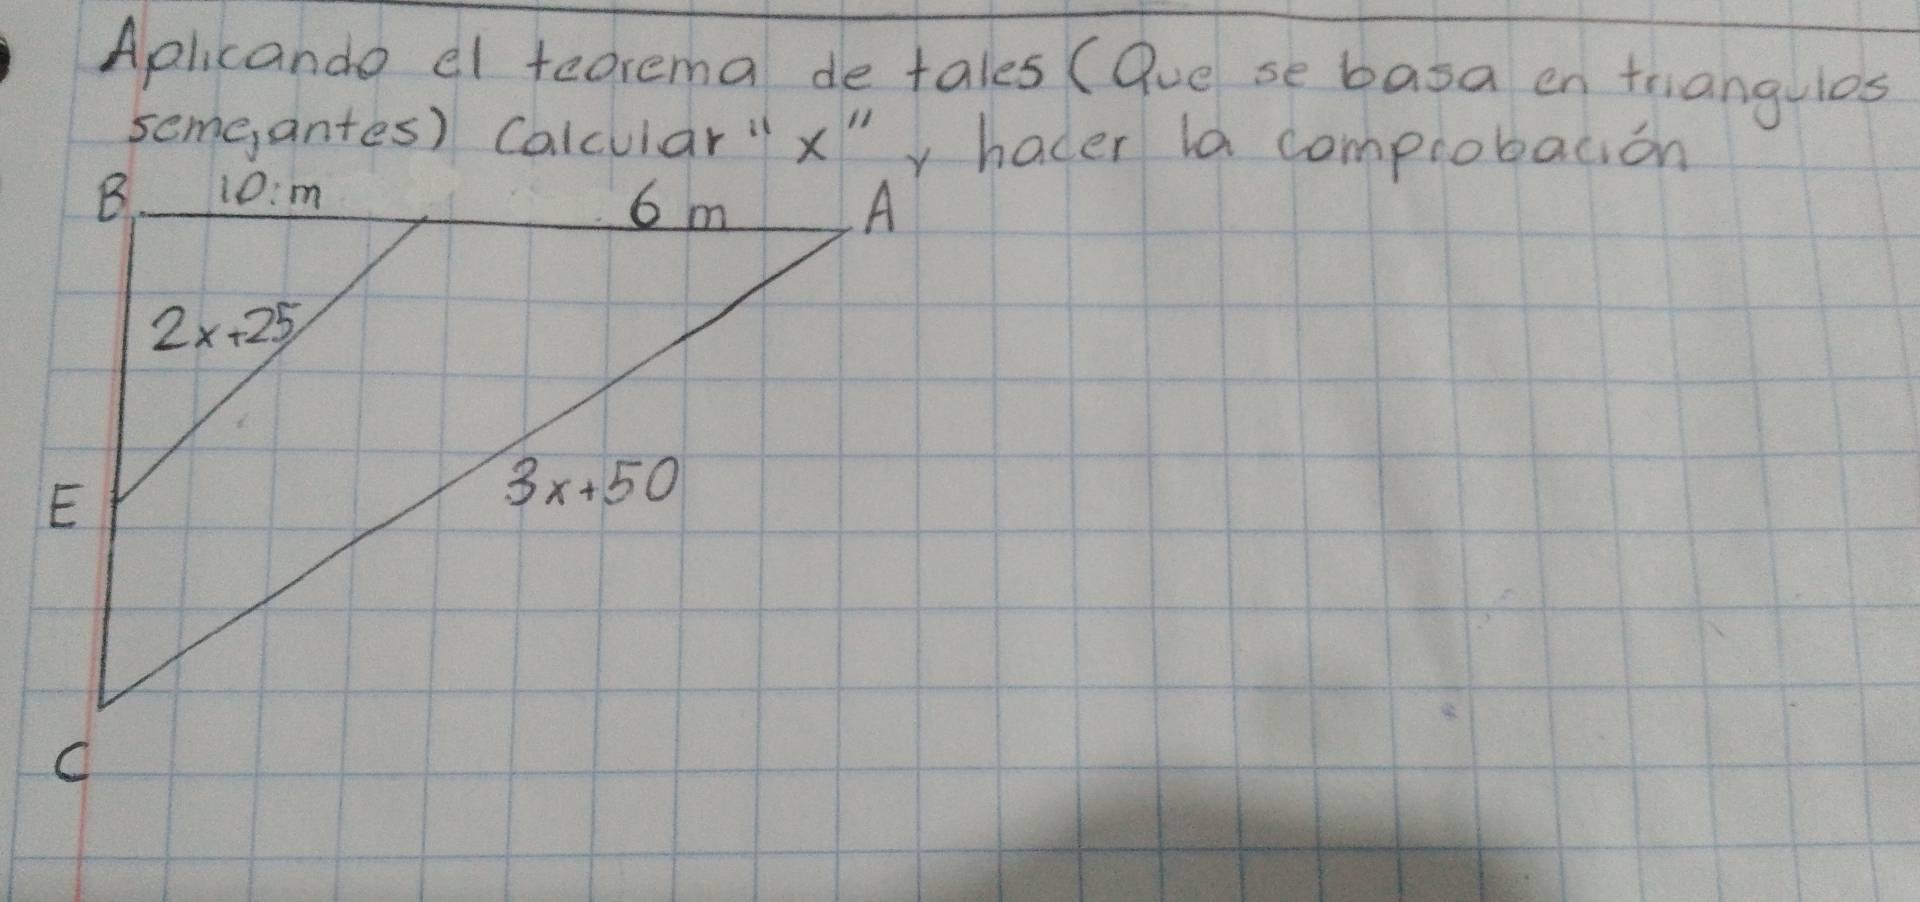 Aplicando el teorema de tales (Que se basa en triangulos
semejantes) Calcular "x" y hacer la comprobación
B 10:m 6 m A
2x+25
E 3x+50
C